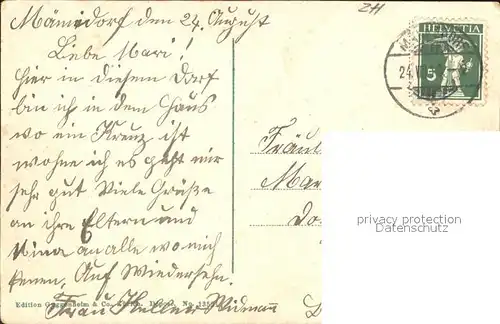 ZH
Mänidorf den 24. August
Liebe Mari!
hier in diesem Dorf
bin ich in dem Haus
wo ein Kreuz ist
wohne ich es geht mir
sehr gut Viele Grüße
an ihre Eltern und
Nina an alle wo mich
kenen. Auf Wiedersehn.
Frau Keller Widmann
HELVETIA
5
24. VIII
Fräu
Mar
Do
privacy protection
Datenschutz
Edition Guggenheim & Co., Zürich. No.